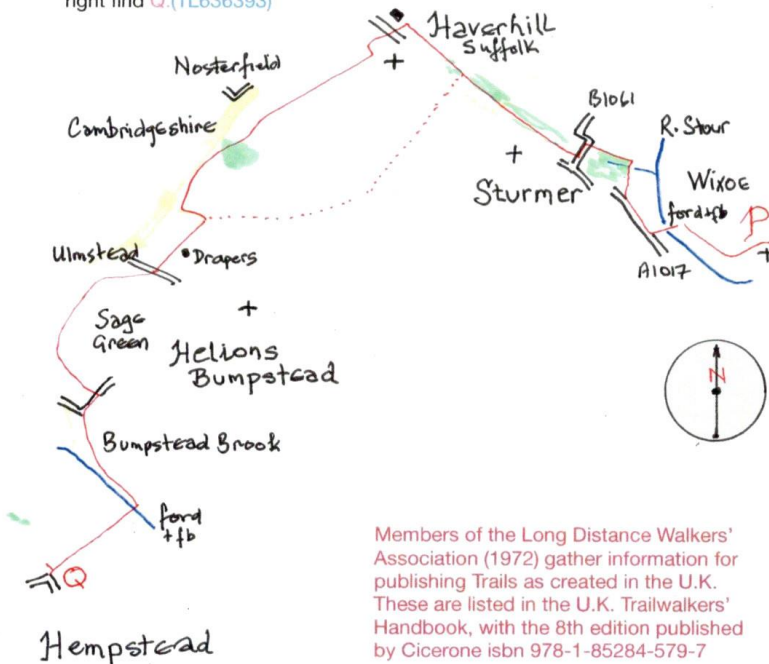 right find Q.(TL636393)
Haverhill
Suffolk
Nosterfield
Cambridgeshire
B1061
R. Stour
Sturmer
Wixoe
ford+fb
P
A1017
Ulmstead
Drapers
Sage
Green
Helions
Bumpstead
N
Bumpstead Brook
ford
+fb
Q
Hempstead
Members of the Long Distance Walkers'
Association (1972) gather information for
publishing Trails as created in the U.K.
These are listed in the U.K. Trailwalkers'
Handbook, with the 8th edition published
by Cicerone isbn 978-1-85284-579-7